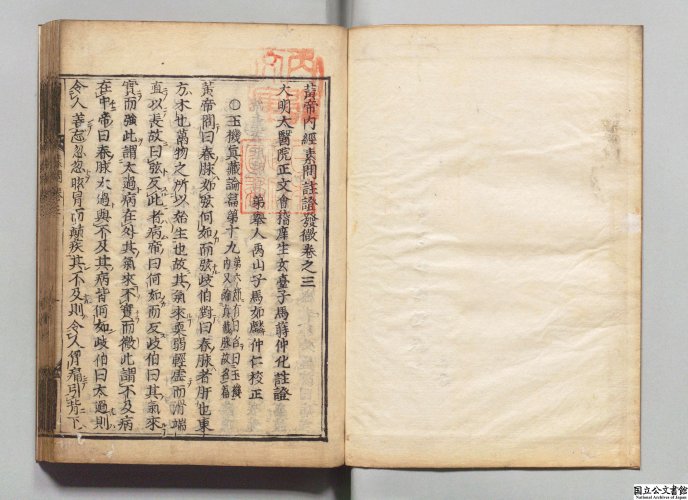 黃帝內經素問註證發微卷之三
大明太醫院正文會稽庠生玄臺子馬蒔仲化註證
弟舉人禹山子馬如麟仲仁校正
○玉機眞藏論篇第十九
黃帝問曰春脉如弦何如而弦岐伯對曰春脉者肝也東
方木也萬物之所以始生也故其氣來耎弱輕虛而滑端
直以長故曰弦反此者病帝曰何如而反岐伯曰其氣來
實而強此謂太過病在外其氣來不實而微此謂不及病
在中帝曰春脉太過與不及其病皆何如岐伯曰太過則
令人善忘忽忽眩冒而巔疾其不及則令人胸痛引背下
国立公文書館
National Archives of Japan